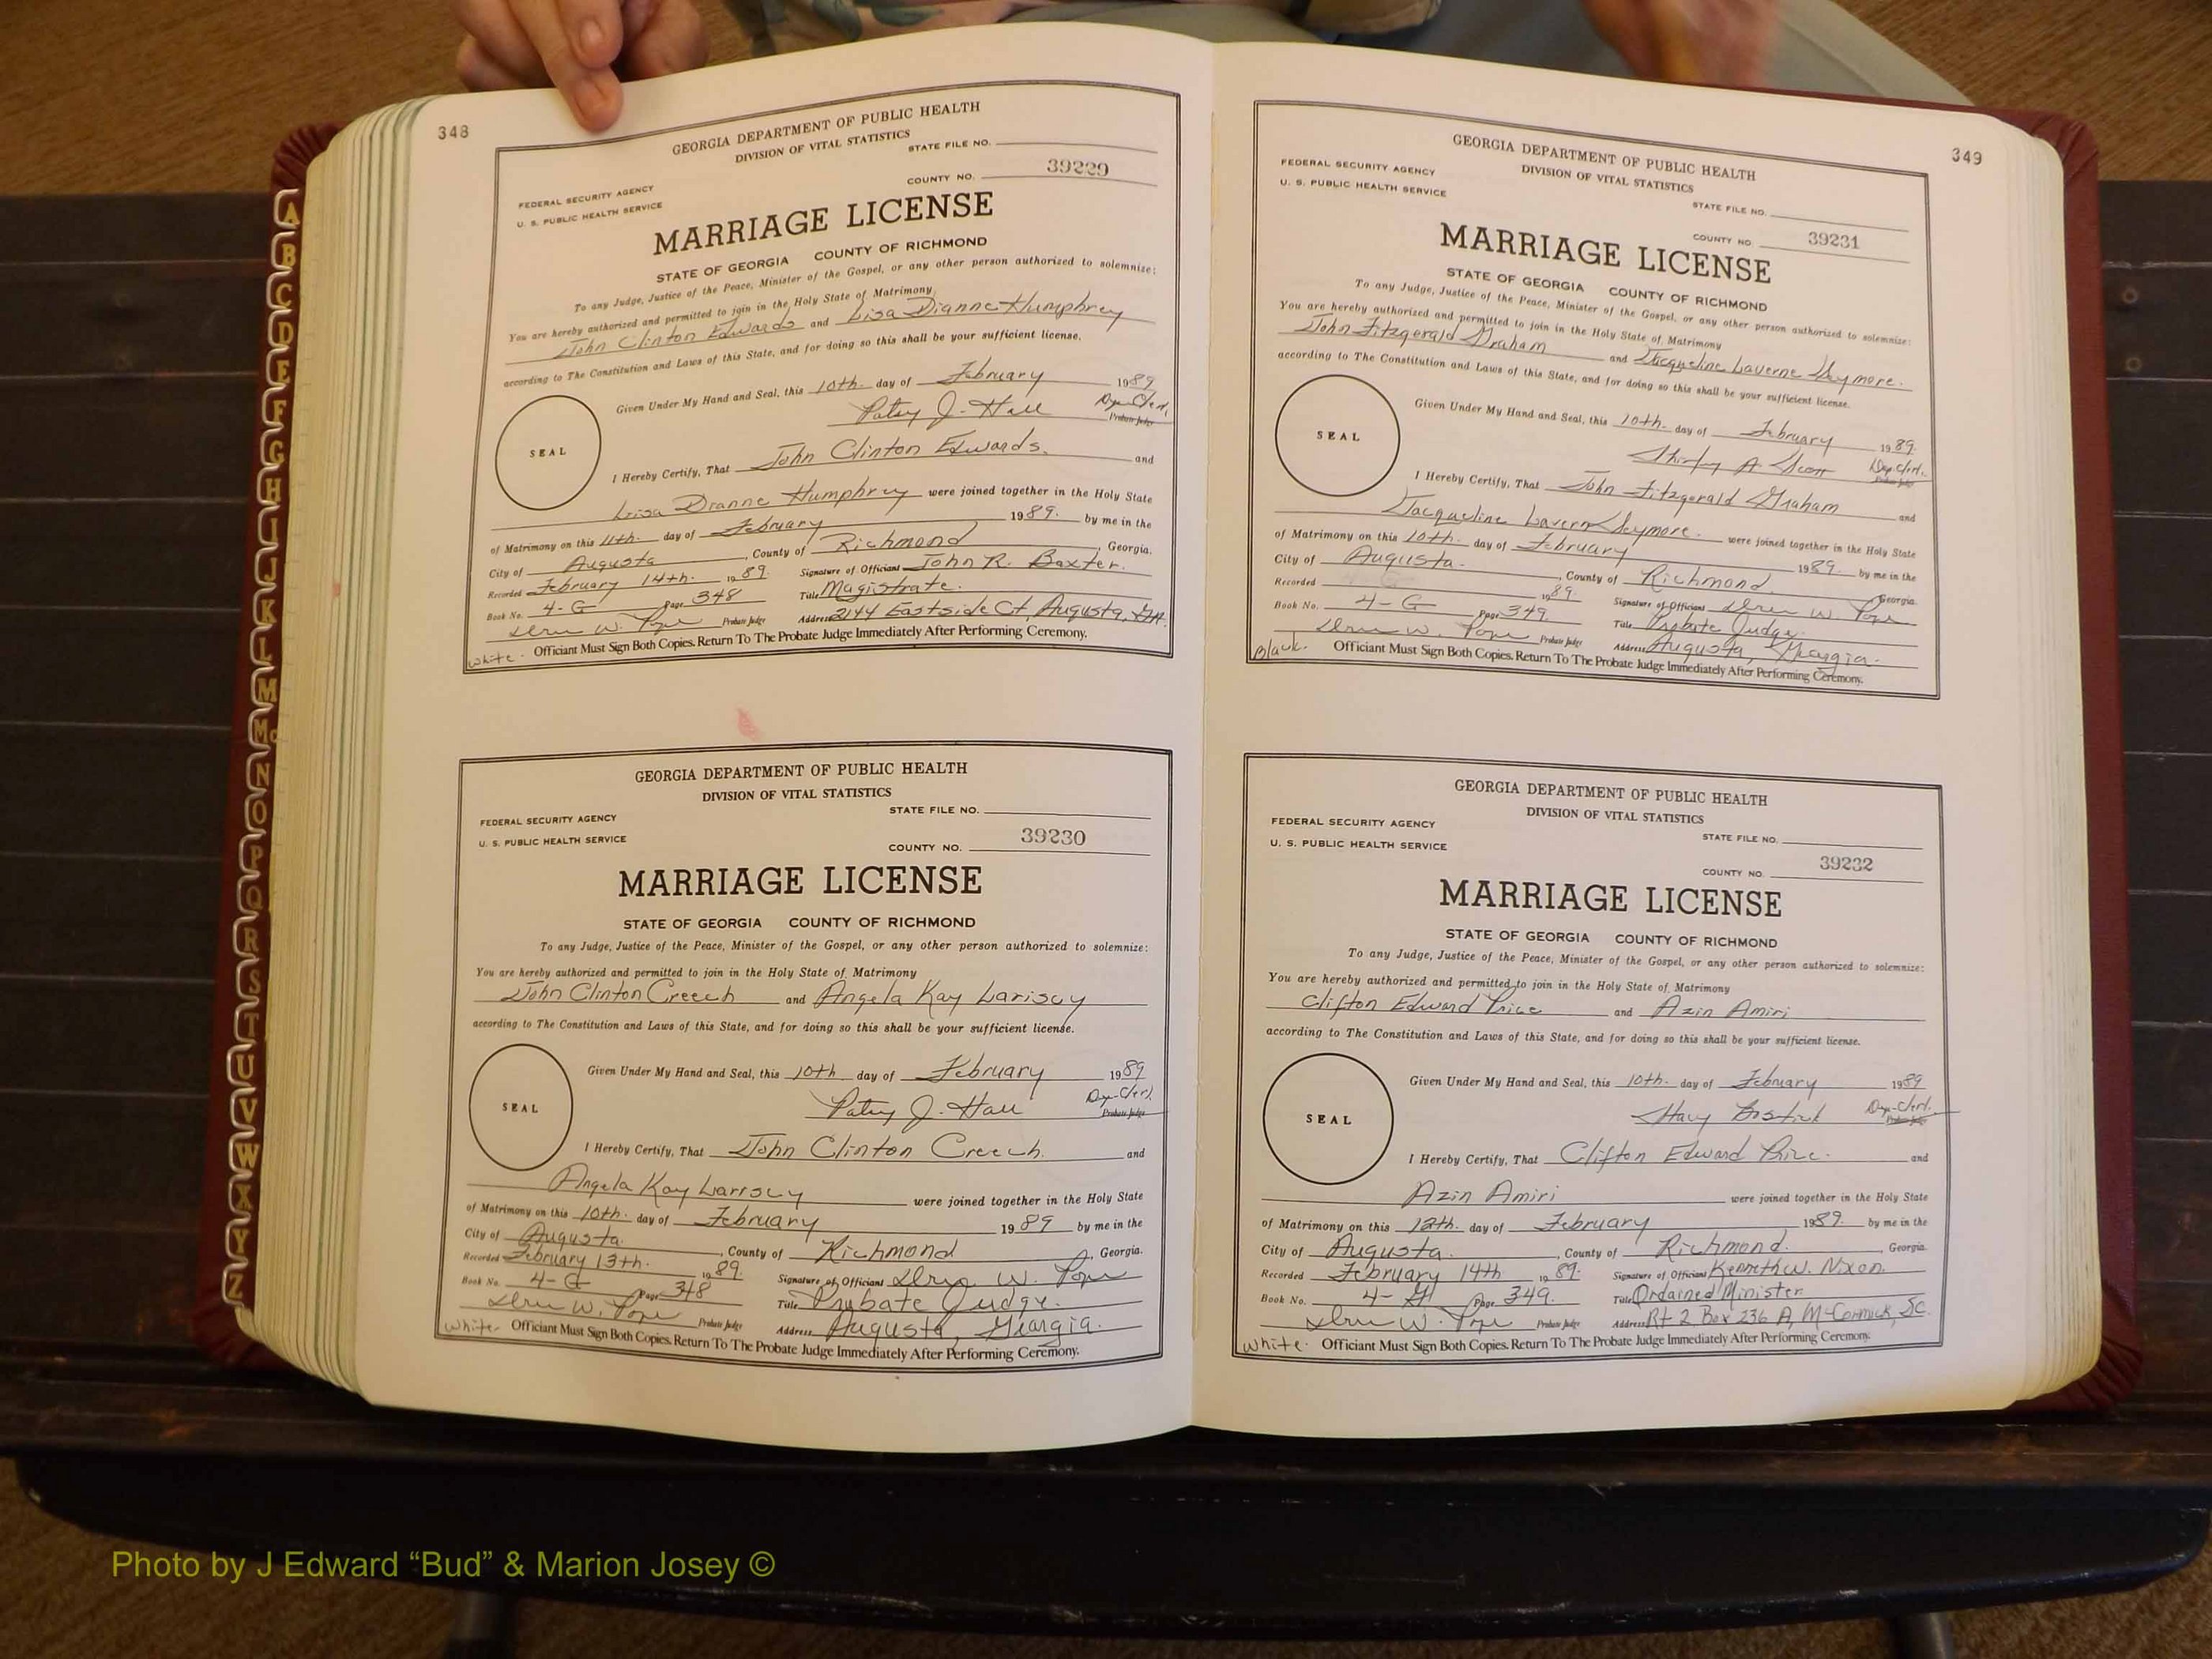 348
GEORGIA DEPARTMENT OF PUBLIC HEALTH
DIVISION OF VITAL STATISTICS
STATE FILE NO.
COUNTY NO. 39229
FEDERAL SECURITY AGENCY
U. S. PUBLIC HEALTH SERVICE
MARRIAGE LICENSE
STATE OF GEORGIA COUNTY OF RICHMOND
To any Judge, Justice of the Peace, Minister of the Gospel, or any other person authorized to solemnize:
You are hereby authorized and permitted to join in the Holy State of Matrimony
John Clinton Edwards and Lisa Dianne Humphrey
according to The Constitution and Laws of this State, and for doing so this shall be your sufficient license.
Given Under My Hand and Seal, this 10th. day of February 1989
Patsy J. Hall Dep-Clerk.
Probate Judge
SEAL
I Hereby Certify, That John Clinton Edwards. and
Lisa Dianne Humphrey were joined together in the Holy State
of Matrimony on this 11th. day of February 1989. by me in the
City of Augusta, County of Richmond, Georgia.
Recorded February 14th. 1989. Signature of Officiant John R. Baxter.
Book No. 4-G Page 348 Title Magistrate.
W. Pope Probate Judge Address 2144 Eastside Ct, Augusta, GA.
White. Officiant Must Sign Both Copies. Return To The Probate Judge Immediately After Performing Ceremony.
GEORGIA DEPARTMENT OF PUBLIC HEALTH
DIVISION OF VITAL STATISTICS
STATE FILE NO.
FEDERAL SECURITY AGENCY
U. S. PUBLIC HEALTH SERVICE
COUNTY NO. 39230
MARRIAGE LICENSE
STATE OF GEORGIA COUNTY OF RICHMOND
To any Judge, Justice of the Peace, Minister of the Gospel, or any other person authorized to solemnize:
You are hereby authorized and permitted to join in the Holy State of Matrimony
John Clinton Creech and Angela Kay Lariscy
according to The Constitution and Laws of this State, and for doing so this shall be your sufficient license.
Given Under My Hand and Seal, this 10th day of February 1989
Patsy J. Hall Dep-Clerk.
Probate Judge
SEAL
I Hereby Certify, That John Clinton Creech. and
Angela Kay Lariscy were joined together in the Holy State
of Matrimony on this 10th. day of February 1989 by me in the
City of Augusta., County of Richmond, Georgia.
Recorded February 13th. 1989. Signature of Officiant W. Pope
Book No. 4-G Page 348 Title Probate Judge.
W. Pope Probate Judge Address Augusta, Georgia.
White- Officiant Must Sign Both Copies. Return To The Probate Judge Immediately After Performing Ceremony.
349
GEORGIA DEPARTMENT OF PUBLIC HEALTH
DIVISION OF VITAL STATISTICS
FEDERAL SECURITY AGENCY
U. S. PUBLIC HEALTH SERVICE
STATE FILE NO.
COUNTY NO. 39231
MARRIAGE LICENSE
STATE OF GEORGIA COUNTY OF RICHMOND
To any Judge, Justice of the Peace, Minister of the Gospel, or any other person authorized to solemnize:
You are hereby authorized and permitted to join in the Holy State of Matrimony
John Fitzgerald Graham and Jacqueline Laverne Seymore.
according to The Constitution and Laws of this State, and for doing so this shall be your sufficient license.
Given Under My Hand and Seal, this 10th. day of February 1989.
Shirley A Scott Dep-Clerk.
Probate Judge
SEAL
I Hereby Certify, That John Fitzgerald Graham and
Jacqueline Lavern Seymore. were joined together in the Holy State
of Matrimony on this 10th. day of February 1989. by me in the
City of Augusta., County of Richmond., Georgia.
Recorded 1989. Signature of Officiant W. Pope
Book No. 4-G Page 349. Title Probate Judge.
W. Pope Probate Judge Address Augusta, Georgia.
Black. Officiant Must Sign Both Copies. Return To The Probate Judge Immediately After Performing Ceremony.
GEORGIA DEPARTMENT OF PUBLIC HEALTH
DIVISION OF VITAL STATISTICS
FEDERAL SECURITY AGENCY
STATE FILE NO.
U. S. PUBLIC HEALTH SERVICE
COUNTY NO. 39232
MARRIAGE LICENSE
STATE OF GEORGIA COUNTY OF RICHMOND
To any Judge, Justice of the Peace, Minister of the Gospel, or any other person authorized to solemnize:
You are hereby authorized and permitted to join in the Holy State of Matrimony
Clifton Edward Price and Azin Amiri
according to The Constitution and Laws of this State, and for doing so this shall be your sufficient license.
Given Under My Hand and Seal, this 10th. day of February 1989
Dep-Clerk.
Probate Judge
SEAL
I Hereby Certify, That Clifton Edward Price. and
Azin Amiri were joined together in the Holy State
of Matrimony on this 12th. day of February 1989. by me in the
City of Augusta., County of Richmond., Georgia.
Recorded February 14th 1989. Signature of Officiant Kenneth W. Nixon.
Book No. 4- Page 349. Title Ordained Minister
W. Pope Probate Judge Address Rt 2 Box 236 A, McCormick, SC.
White. Officiant Must Sign Both Copies. Return To The Probate Judge Immediately After Performing Ceremony.
A
B
C
D
E
F
G
H
I
J
K
L
M
Mc
N
O
P
Q
R
S
T
U
V
W
X
Y
Z
Photo by J Edward “Bud” & Marion Josey ©